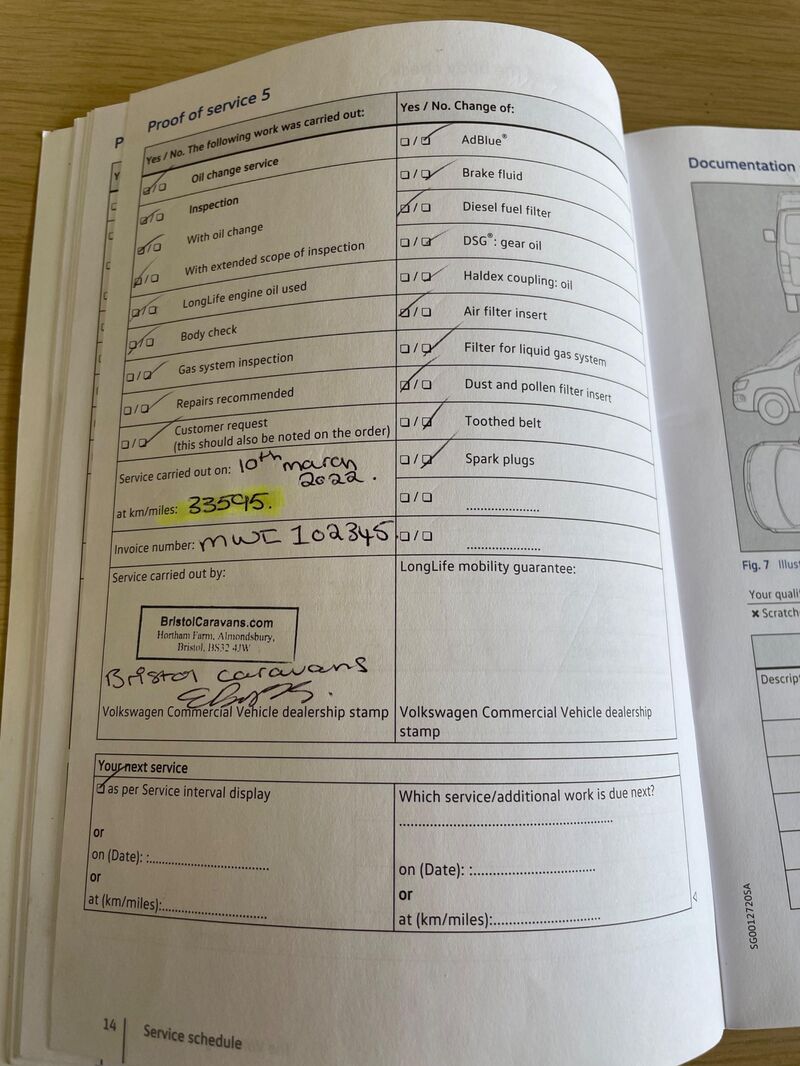 Proof of service 5
Yes / No. The following work was carried out:
Oil change service
Inspection
With oil change
With extended scope of inspection
LongLife engine oil used
Body check
Gas system inspection
Repairs recommended
Customer request
(this should also be noted on the order)
Service carried out on: 10th march
2022.
at km/miles: 33595.
Invoice number: MWI 102345
Service carried out by:
BristolCaravans.com
Hortham Farm, Almondsbury,
Bristol, BS32 4JW
Bristol caravans
Volkswagen Commercial Vehicle dealership stamp
Yes / No. Change of:
AdBlue®
Brake fluid
Diesel fuel filter
DSG®: gear oil
Haldex coupling: oil
Air filter insert
Filter for liquid gas system
Dust and pollen filter insert
Toothed belt
Spark plugs
LongLife mobility guarantee:
Volkswagen Commercial Vehicle dealership
stamp
Your next service
as per Service interval display
or
on (Date): :
or
at (km/miles):
Which service/additional work is due next?
on (Date): :
or
at (km/miles):
14
Service schedule
Documentation
Fig. 7 Illus
Your quali
× Scratch
Descrip
SG0012720SA